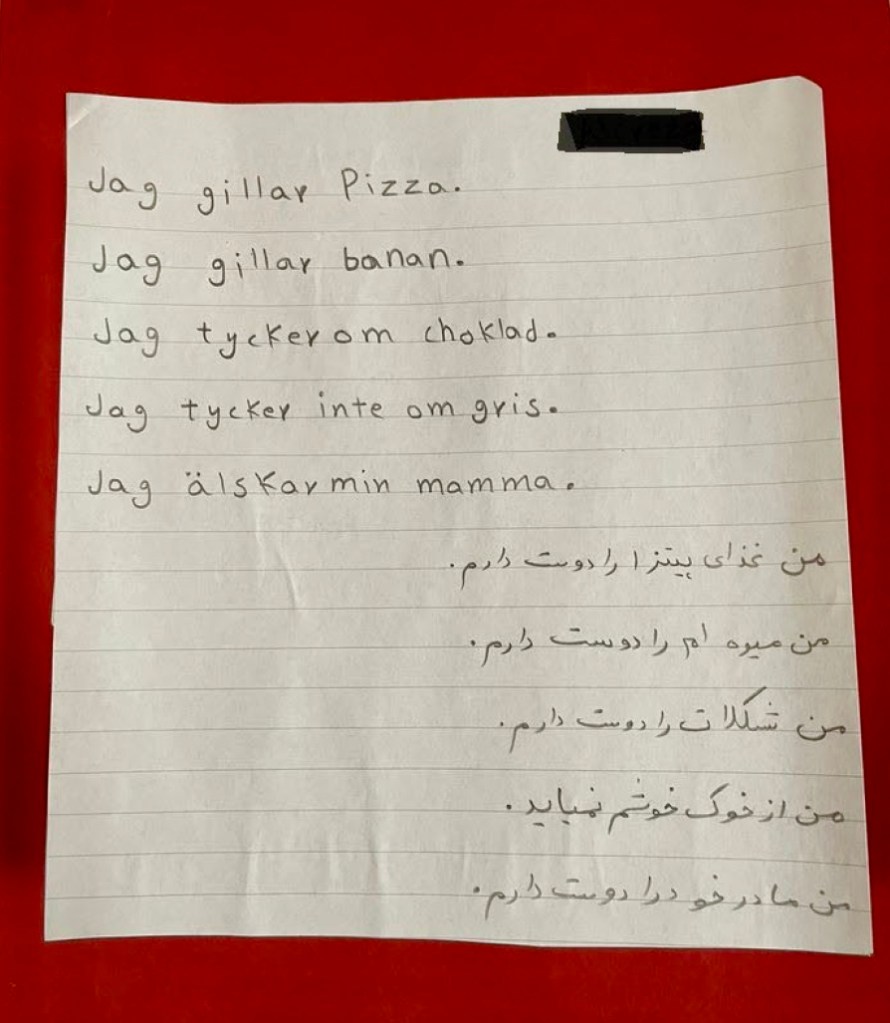 Jag gillar Pizza.
Jag gillar banan.
Jag tycker om choklad.
Jag tycker inte om gris.
Jag älskar min mamma.
من غذای پیتزا را دوست دارم.
من میوه ام را دوست دارم.
من شکلات را دوست دارم.
من از خوک خوشم نمیاید.
من مادر خود را دوست دارم.